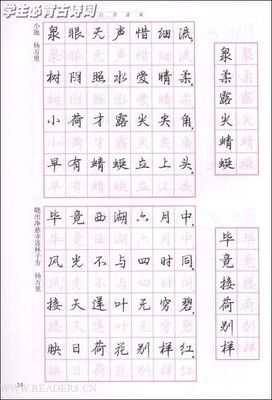 学生必背古诗词
小池 杨万里
泉眼无声惜细流,
树阴照水爱晴柔。
小荷才露尖尖角,
早有蜻蜓立上头。
泉
柔
露
尖
蜻
蜓
晓出净慈寺送林子方 杨万里
毕竟西湖六月中,
风光不与四时同。
接天莲叶无穷碧,
映日荷花别样红。
毕
竟
接
荷
别
样
WWW.READERS8.CN